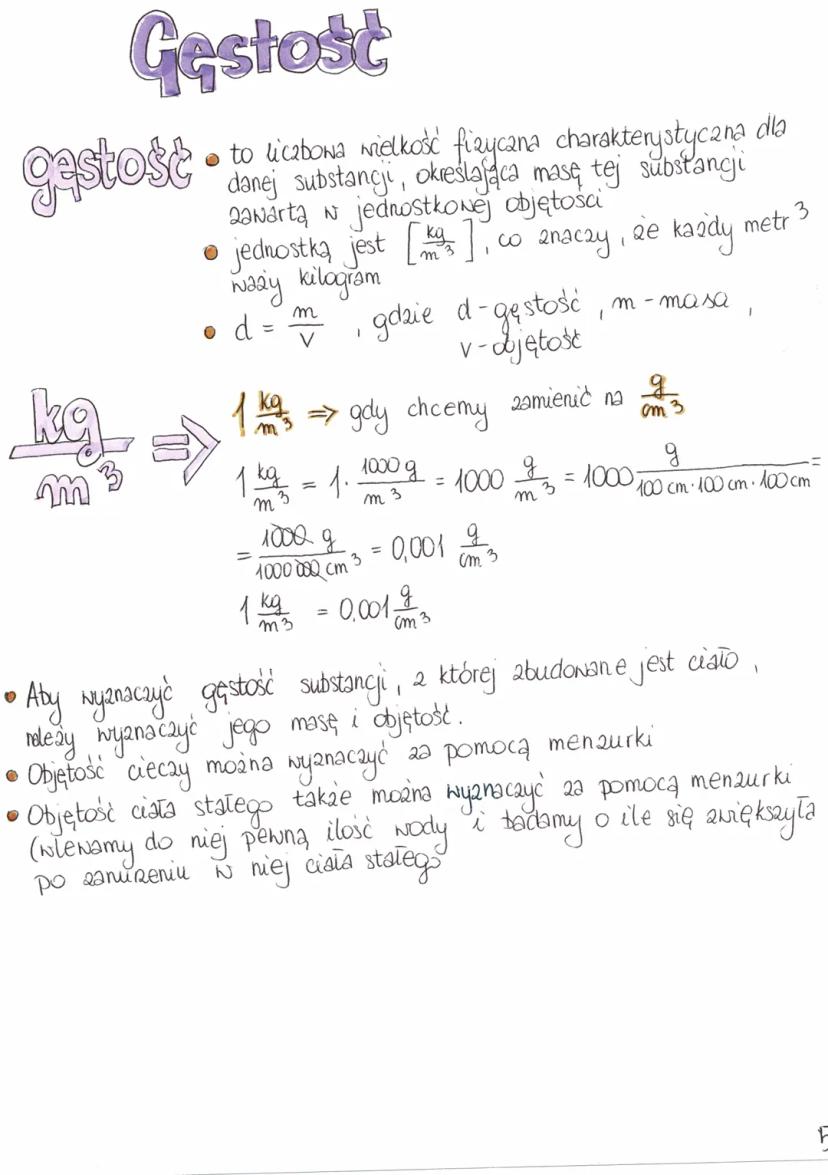 Gęstość
gęstość • to liczbowa wielkość fizyczna charakterystyczna dla
danej substancji, określająca masę tej substancji
zawartą w jednostkowej objętości
• jednostką jest [kg/m³], co znaczy, że każdy metr³
waży kilogram
• d = m/V, gdzie d - gęstość, m - masa,
v - objętość
kg/m³ ⇒ 1 kg/m³ ⇒ gdy chcemy zamienić na g/cm³
1 kg/m³ = 1 · 1000 g/m³ = 1000 g/m³ = 1000 g/100 cm · 100 cm · 100 cm =
= 1000 g/1000 000 cm³ = 0,001 g/cm³
1 kg/m³ = 0,001 g/cm³
• Aby wyznaczyć gęstość substancji, z której zbudowane jest ciało,
należy wyznaczyć jego masę i objętość.
• Objętość cieczy można wyznaczyć za pomocą menzurki
• Objętość ciała stałego także można wyznaczyć za pomocą menzurki
(wlewamy do niej pewną ilość wody i badamy o ile się zwiększyła
po zanurzeniu w niej ciała stałego